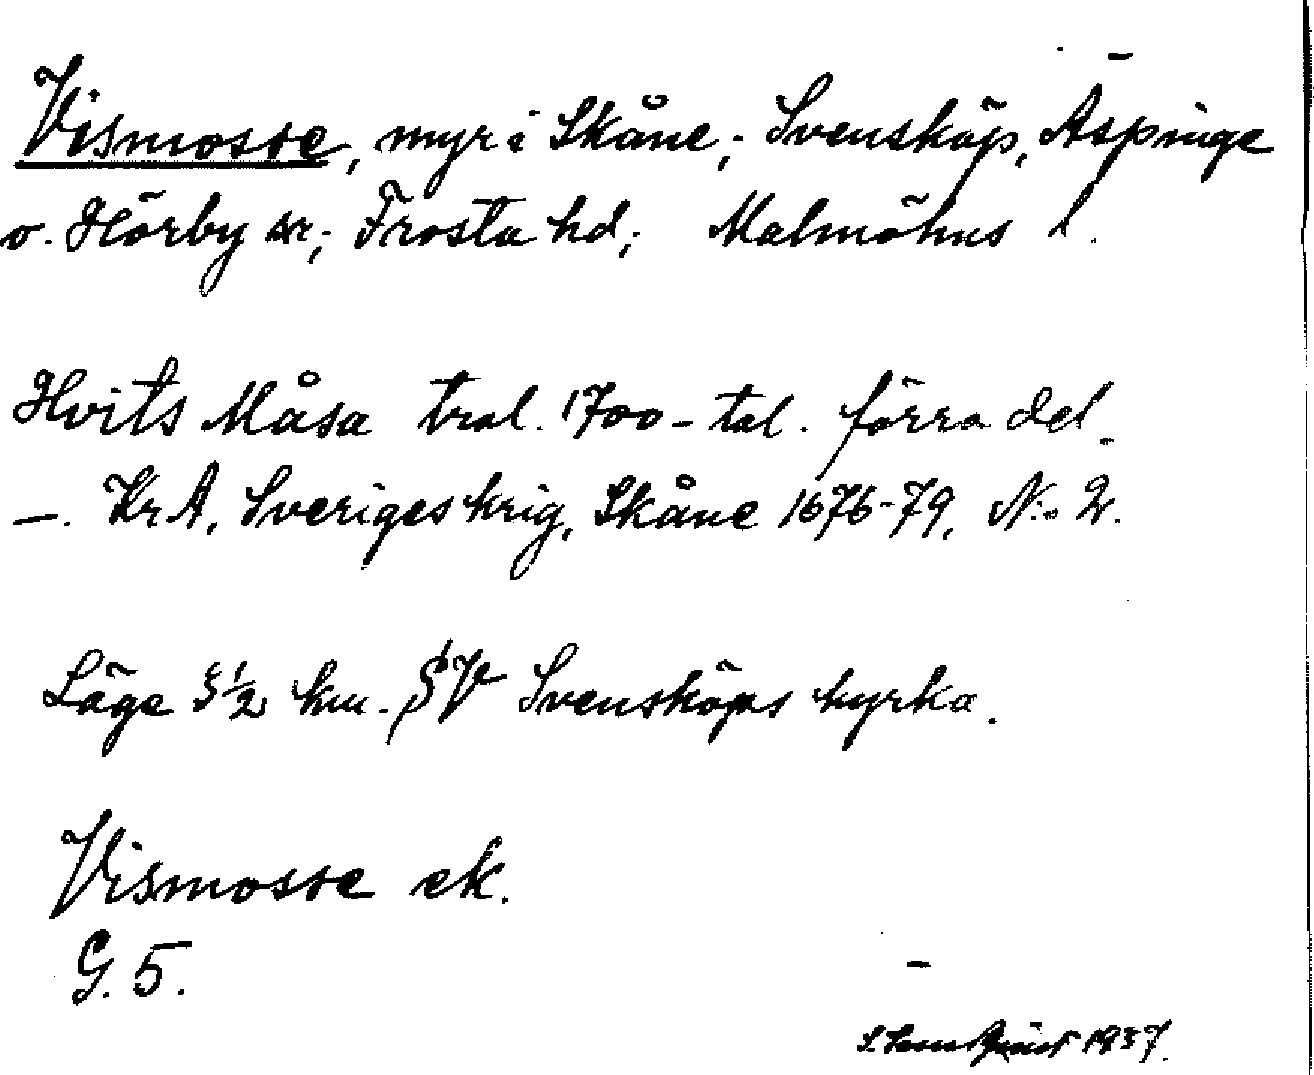 Vismosse, myr i Skåne; Svensköp, Äspinge
o. Hörby sr; Frosta hd; Malmöhus l.
Hvits Måsa trol. 1700-tal. förra del.
—. KrA, Sveriges krig, Skåne 1676-79, N:o 2.
Läge 3½ km. SV Svensköps kyrka.
Vismosse ek.
G. 5.
1937.